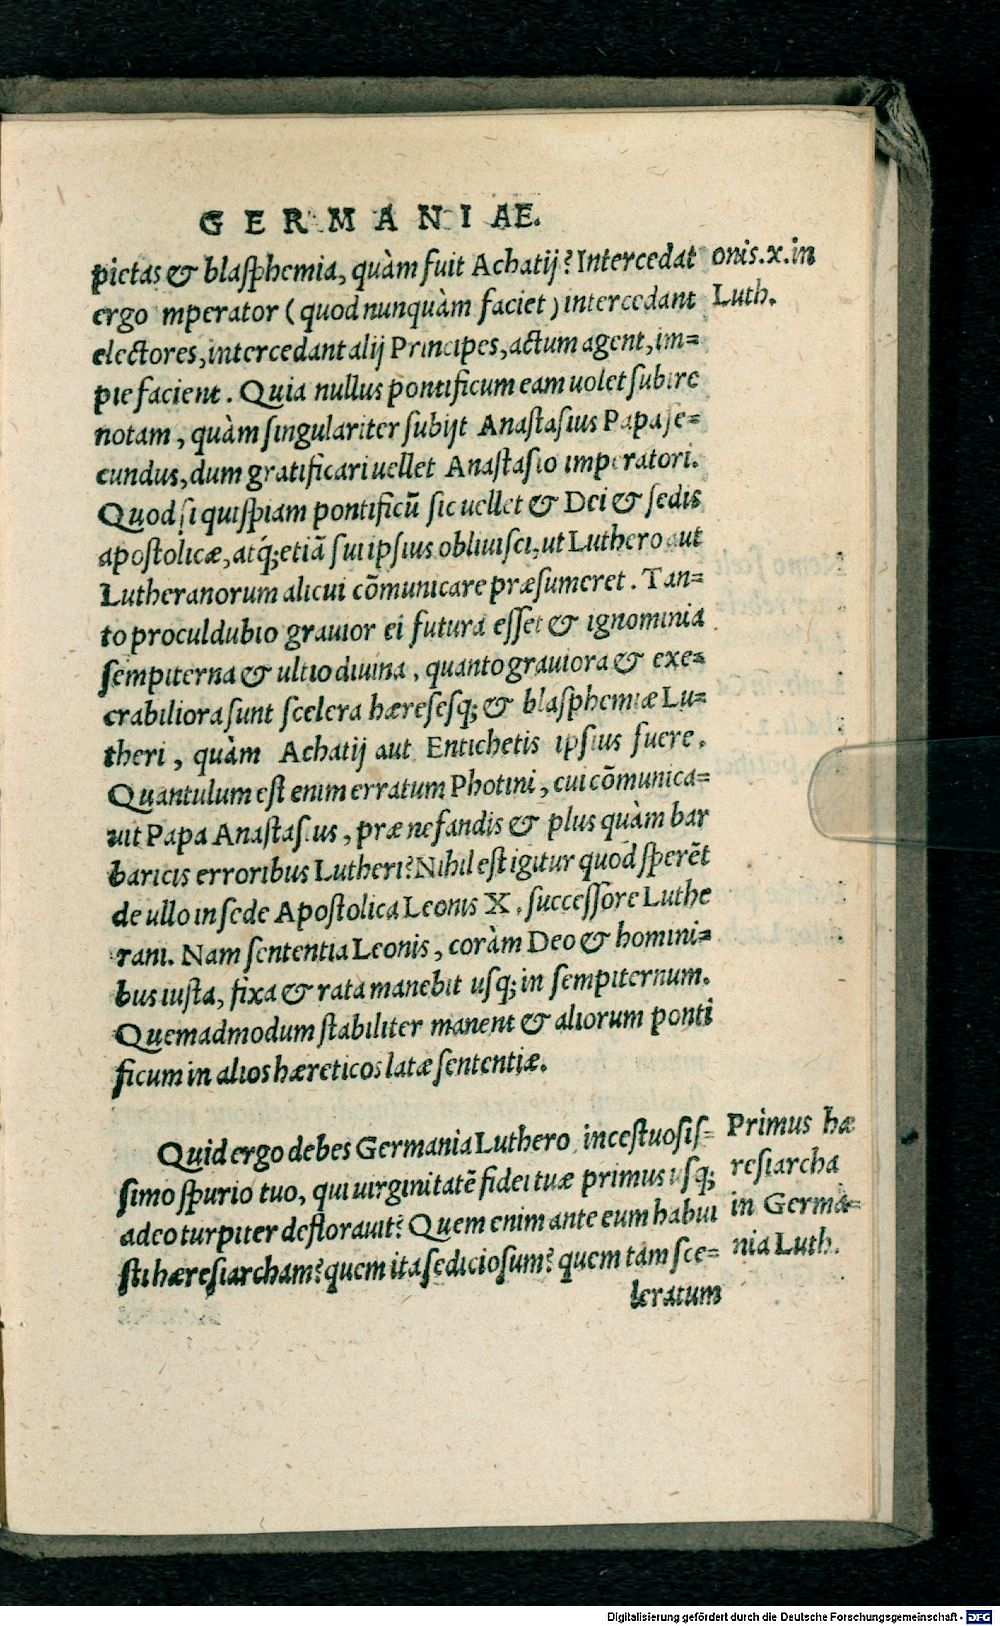 GERMANIAE.
pietas & blasphemia, quàm fuit Achatij? Intercedat
ergo mperator (quod nunquàm faciet) intercedant
electores, intercedant alij Principes, actum agent, im=
pie facient. Quia nullus pontificum eam uolet subire
notam, quàm singulariter subijt Anastasius Papa se=
cundus, dum gratificari uellet Anastasio imperatori.
Quod si quispiam pontificū sic uellet & Dei & sedis
apostolicæ, atq́; etiā sui ipsius obliuisci, ut Luthero aut
Lutheranorum alicui cōmunicare præsumeret. Tan=
to proculdubio grauior ei futura esset & ignominia
sempiterna & ultio diuina, quanto grauiora & exe=
crabiliora sunt scelera hæresesq; & blasphemiæ Lu=
theri, quàm Achatij aut Entichetis ipsius fuere.
Quantulum est enim erratum Photini, cui cōmunica=
uit Papa Anastasius, præ nefandis & plus quàm bar
baricis erroribus Lutheri? Nihil est igitur quod sperēt
de ullo in sede Apostolica Leonis X. successore Luthe
rani. Nam sententia Leonis, coràm Deo & homini=
bus iusta, fixa & rata manebit usq; in sempiternum.
Quemadmodum stabiliter manent & aliorum ponti
ficum in alios hæreticos latæ sententiæ.
Quid ergo debes Germania Luthero, incestuosis=
simo spurio tuo, qui uirginitatē fidei tuæ primus usq;
adeo turpiter deflorauit? Quem enim ante eum habui
sti hæresiarcham? quem ita sediciosum? quem tam sce=
leratum
onis.x.in
Luth.
Primus hæ
resiarcha
in Germa=
nia Luth.
Digitalisierung gefördert durch die Deutsche Forschungsgemeinschaft - DFG